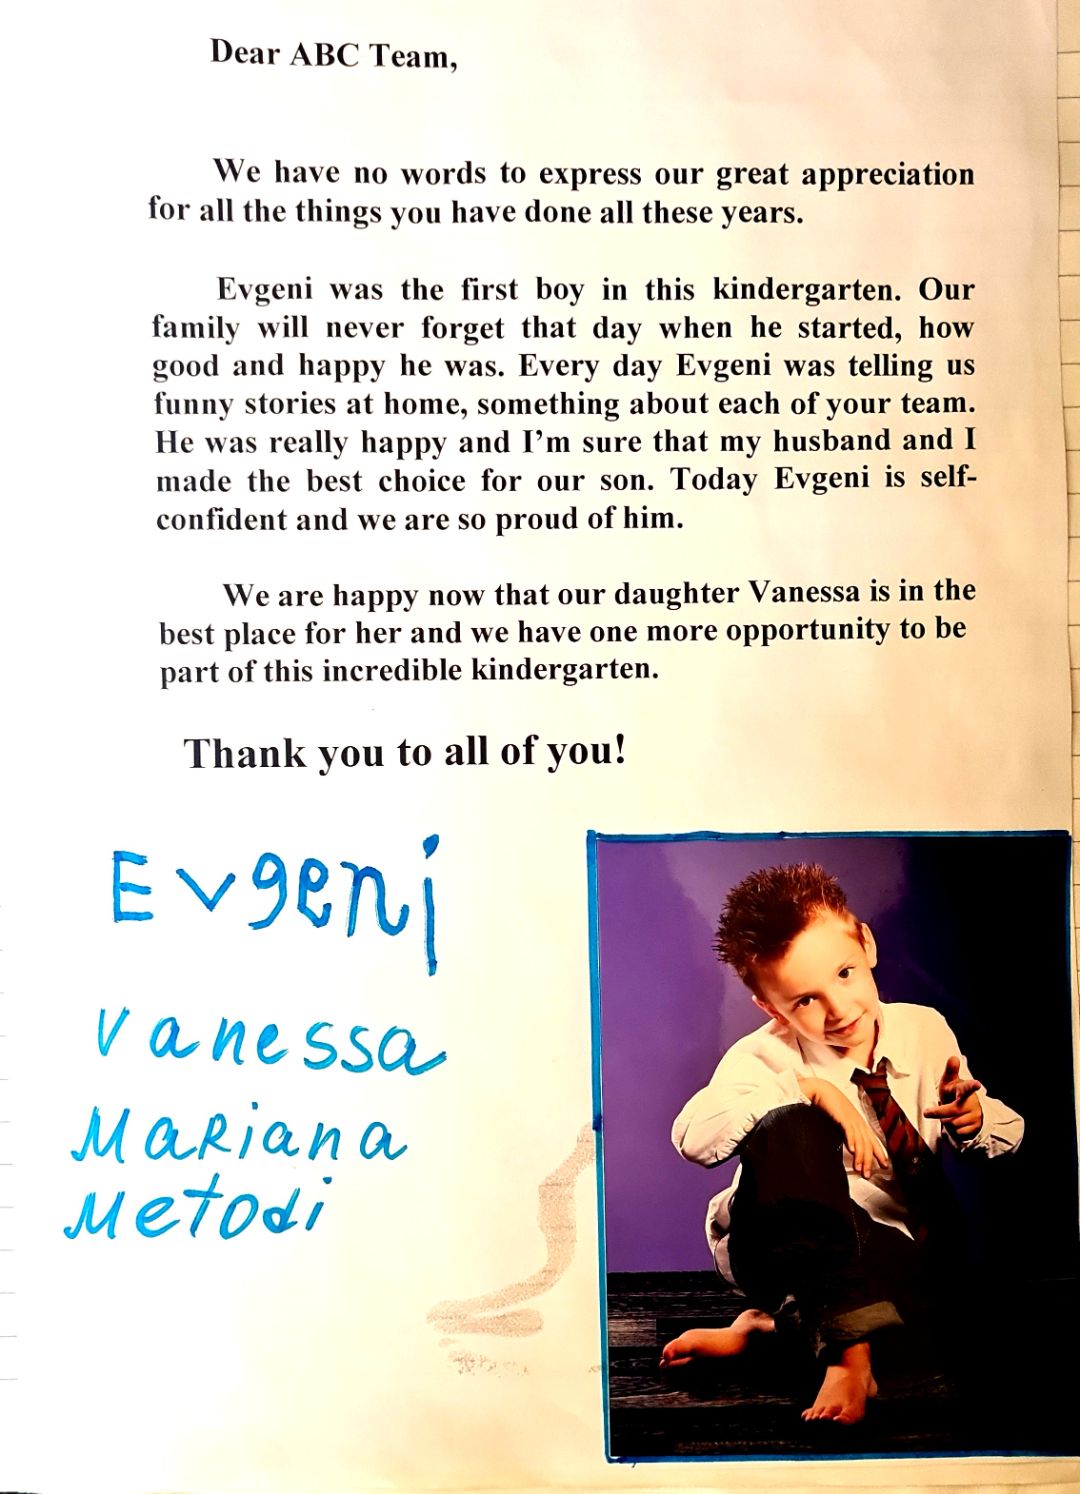 Dear ABC Team,
We have no words to express our great appreciation
for all the things you have done all these years.
Evgeni was the first boy in this kindergarten. Our
family will never forget that day when he started, how
good and happy he was. Every day Evgeni was telling us
funny stories at home, something about each of your team.
He was really happy and I'm sure that my husband and I
made the best choice for our son. Today Evgeni is self-
confident and we are so proud of him.
We are happy now that our daughter Vanessa is in the
best place for her and we have one more opportunity to be
part of this incredible kindergarten.
Thank you to all of you!
Evgeni
Vanessa
Mariana
Metodi